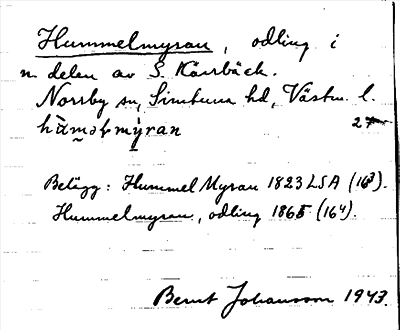 Hummelmyran, odling i
n. delen av S. Kärrbäck.
Norrby sn, Simtuna hd, Västm. l.
hùməɫmỳran 27
Belägg: Hummel Myran 1823 LSA (163).
Hummelmyran, odling 1865 (164).
Bernt Johansson 1943.